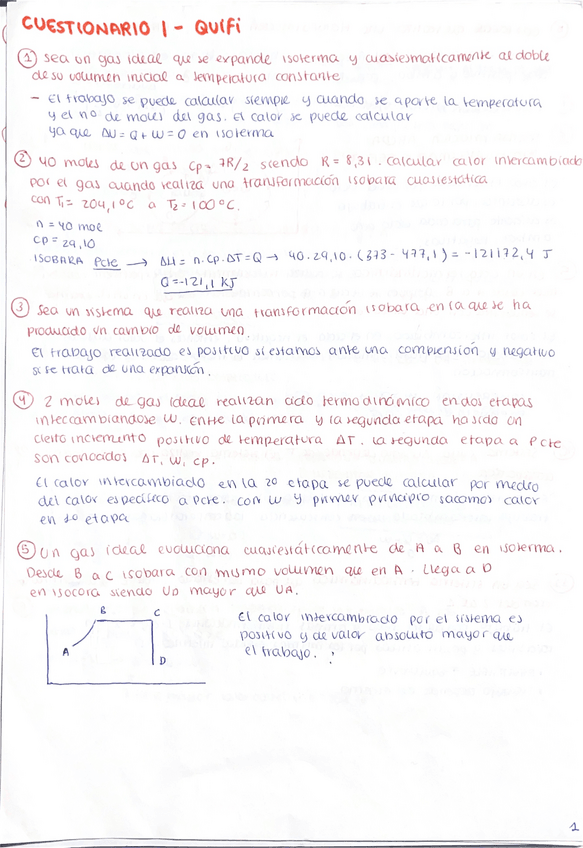 CUESTIONARIO 1 - QUIFI
① Sea un gas ideal que se expande isoterma y cuasiesmaticamente al doble
de su volumen inicial a temperatura constante
- El trabajo se puede calcular siempre y cuando se aporte la temperatura
y el nº de moles del gas. El calor se puede calcular
ya que ΔU = Q + W = 0 en isoterma
② 40 moles de un gas Cp = 7R/2 siendo R = 8,31. Calcular calor intercambiado
por el gas cuando realiza una transformación isobara cuasiestática
con T₁ = 204,1ºC a T₂ = 100ºC.
n = 40 mol
CP = 29,10
ISOBARA Pcte → ΔH = n·Cp·ΔT = Q → 40·29,10·(373 - 477,1) = -121172,4 J
Q = -121,1 KJ
③ Sea un sistema que realiza una transformación isobara en la que se ha
producido un cambio de volumen.
El trabajo realizado es positivo si estamos ante una comprensión y negativo
si se trata de una expansión.
④ 2 moles de gas ideal realizan ciclo termodinámico en dos etapas
intercambiandose W. Entre la primera y la segunda etapa ha sido un
cierto incremento positivo de temperatura ΔT. La segunda etapa a P cte
son conocidos ΔT, W, Cp.
El calor intercambiado en la 2º etapa se puede calcular por medio
del calor específico a Pcte. Con W y primer principio sacamos calor
en 1º etapa
⑤ Un gas ideal evoluciona cuasiestáticamente de A a B en isoterma.
Desde B a C isobara con mismo volumen que en A. Llega a D
en isocora siendo UD mayor que UA.
B C
A
D
El calor intercambiado por el sistema es
positivo y de valor absoluto mayor que
el trabajo.
1